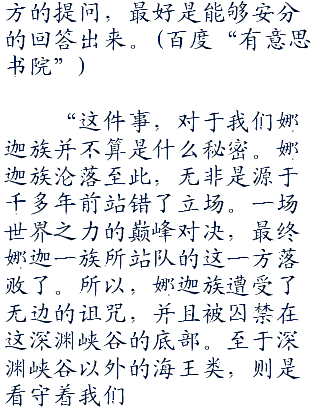 方的提问，最好是能够安分
的回答出来。(百度“有意思
书院”)
“这件事，对于我们娜
迦族并不算是什么秘密。娜
迦族沦落至此，无非是源于
千多年前站错了立场。一场
世界之力的巅峰对决，最终
娜迦一族所站队的这一方落
败了。所以，娜迦族遭受了
无边的诅咒，并且被囚禁在
这深渊峡谷的底部。至于深
渊峡谷以外的海王类，则是
看守着我们